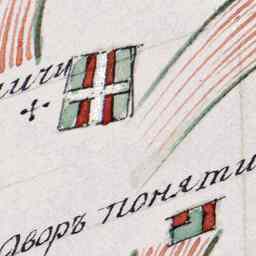 ичи
Дворъ поняти